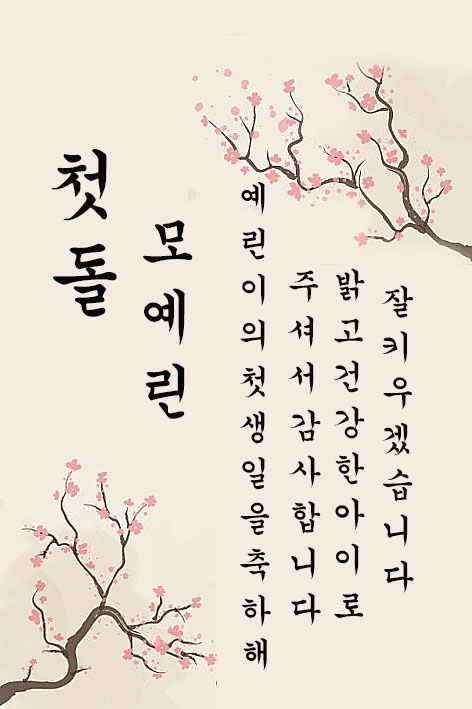 첫돌
모예린
예린이의첫생일을축하해
주셔서감사합니다
밝고건강한아이로
잘키우겠습니다